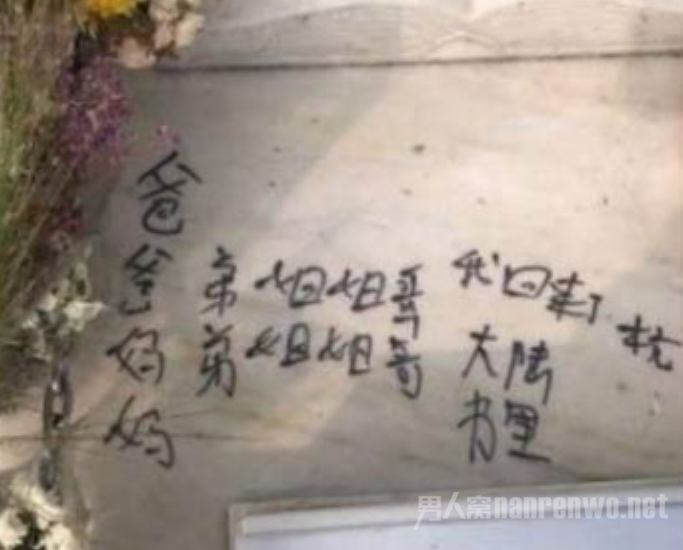 爸爸妈妈
弟弟
姐姐
姐姐
哥哥
我回来了
大陆
里
杭
男人窝nanrenwo.net